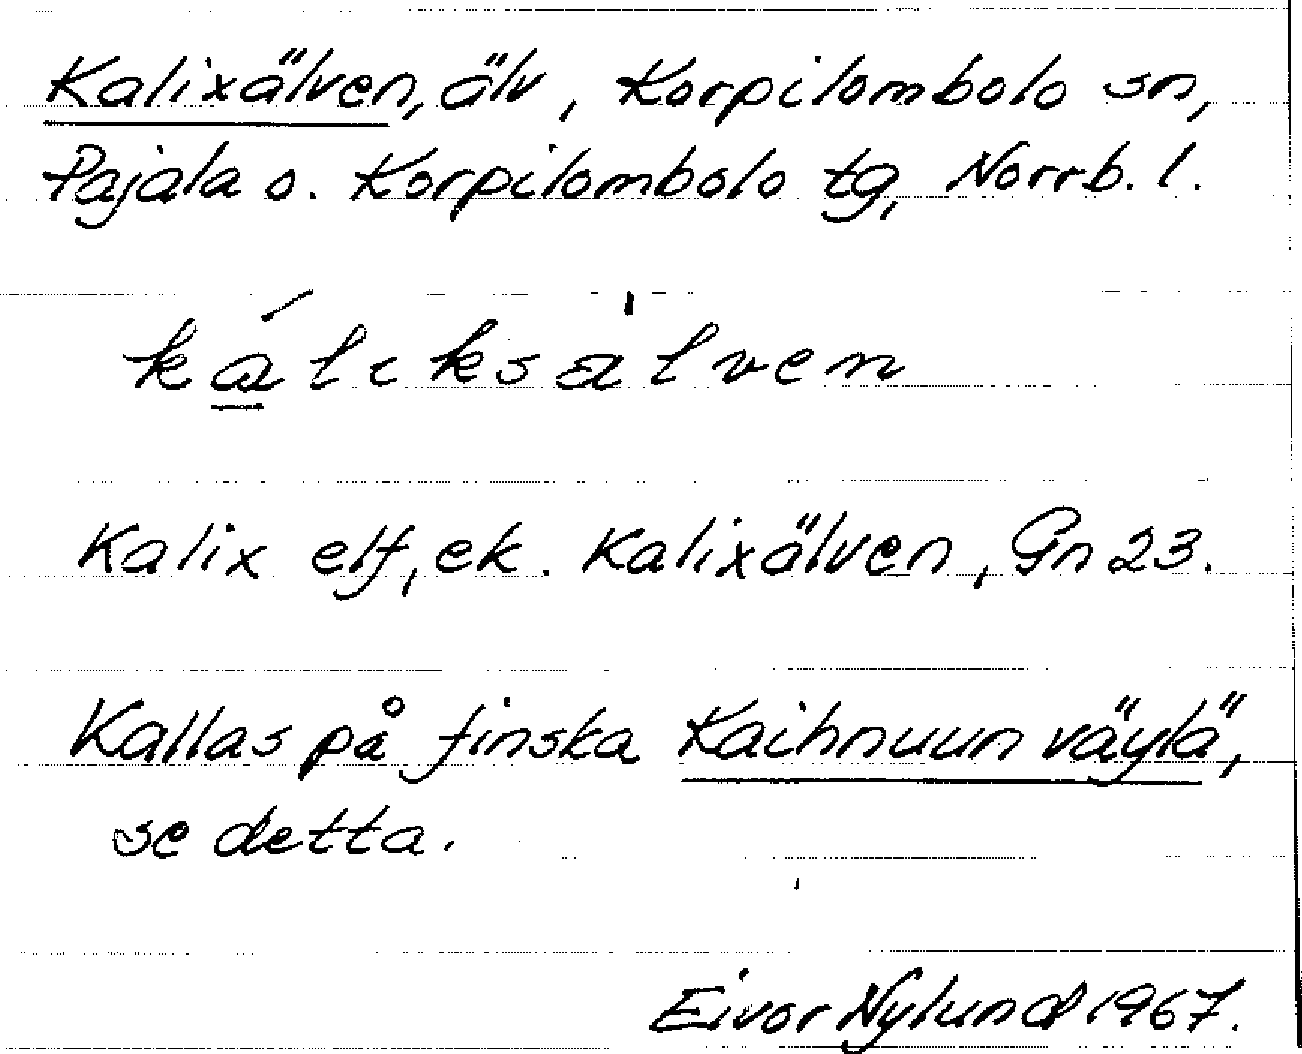 Kalixälven, älv, Korpilombolo sn,
Pajala o. Korpilombolo tg, Norrb. l.
káliksälven
Kalix elf, ek. Kalixälven, Gn 23.
Kallas på finska Kaihnuun väylä,
se detta.
Eivor Nylund 1967.